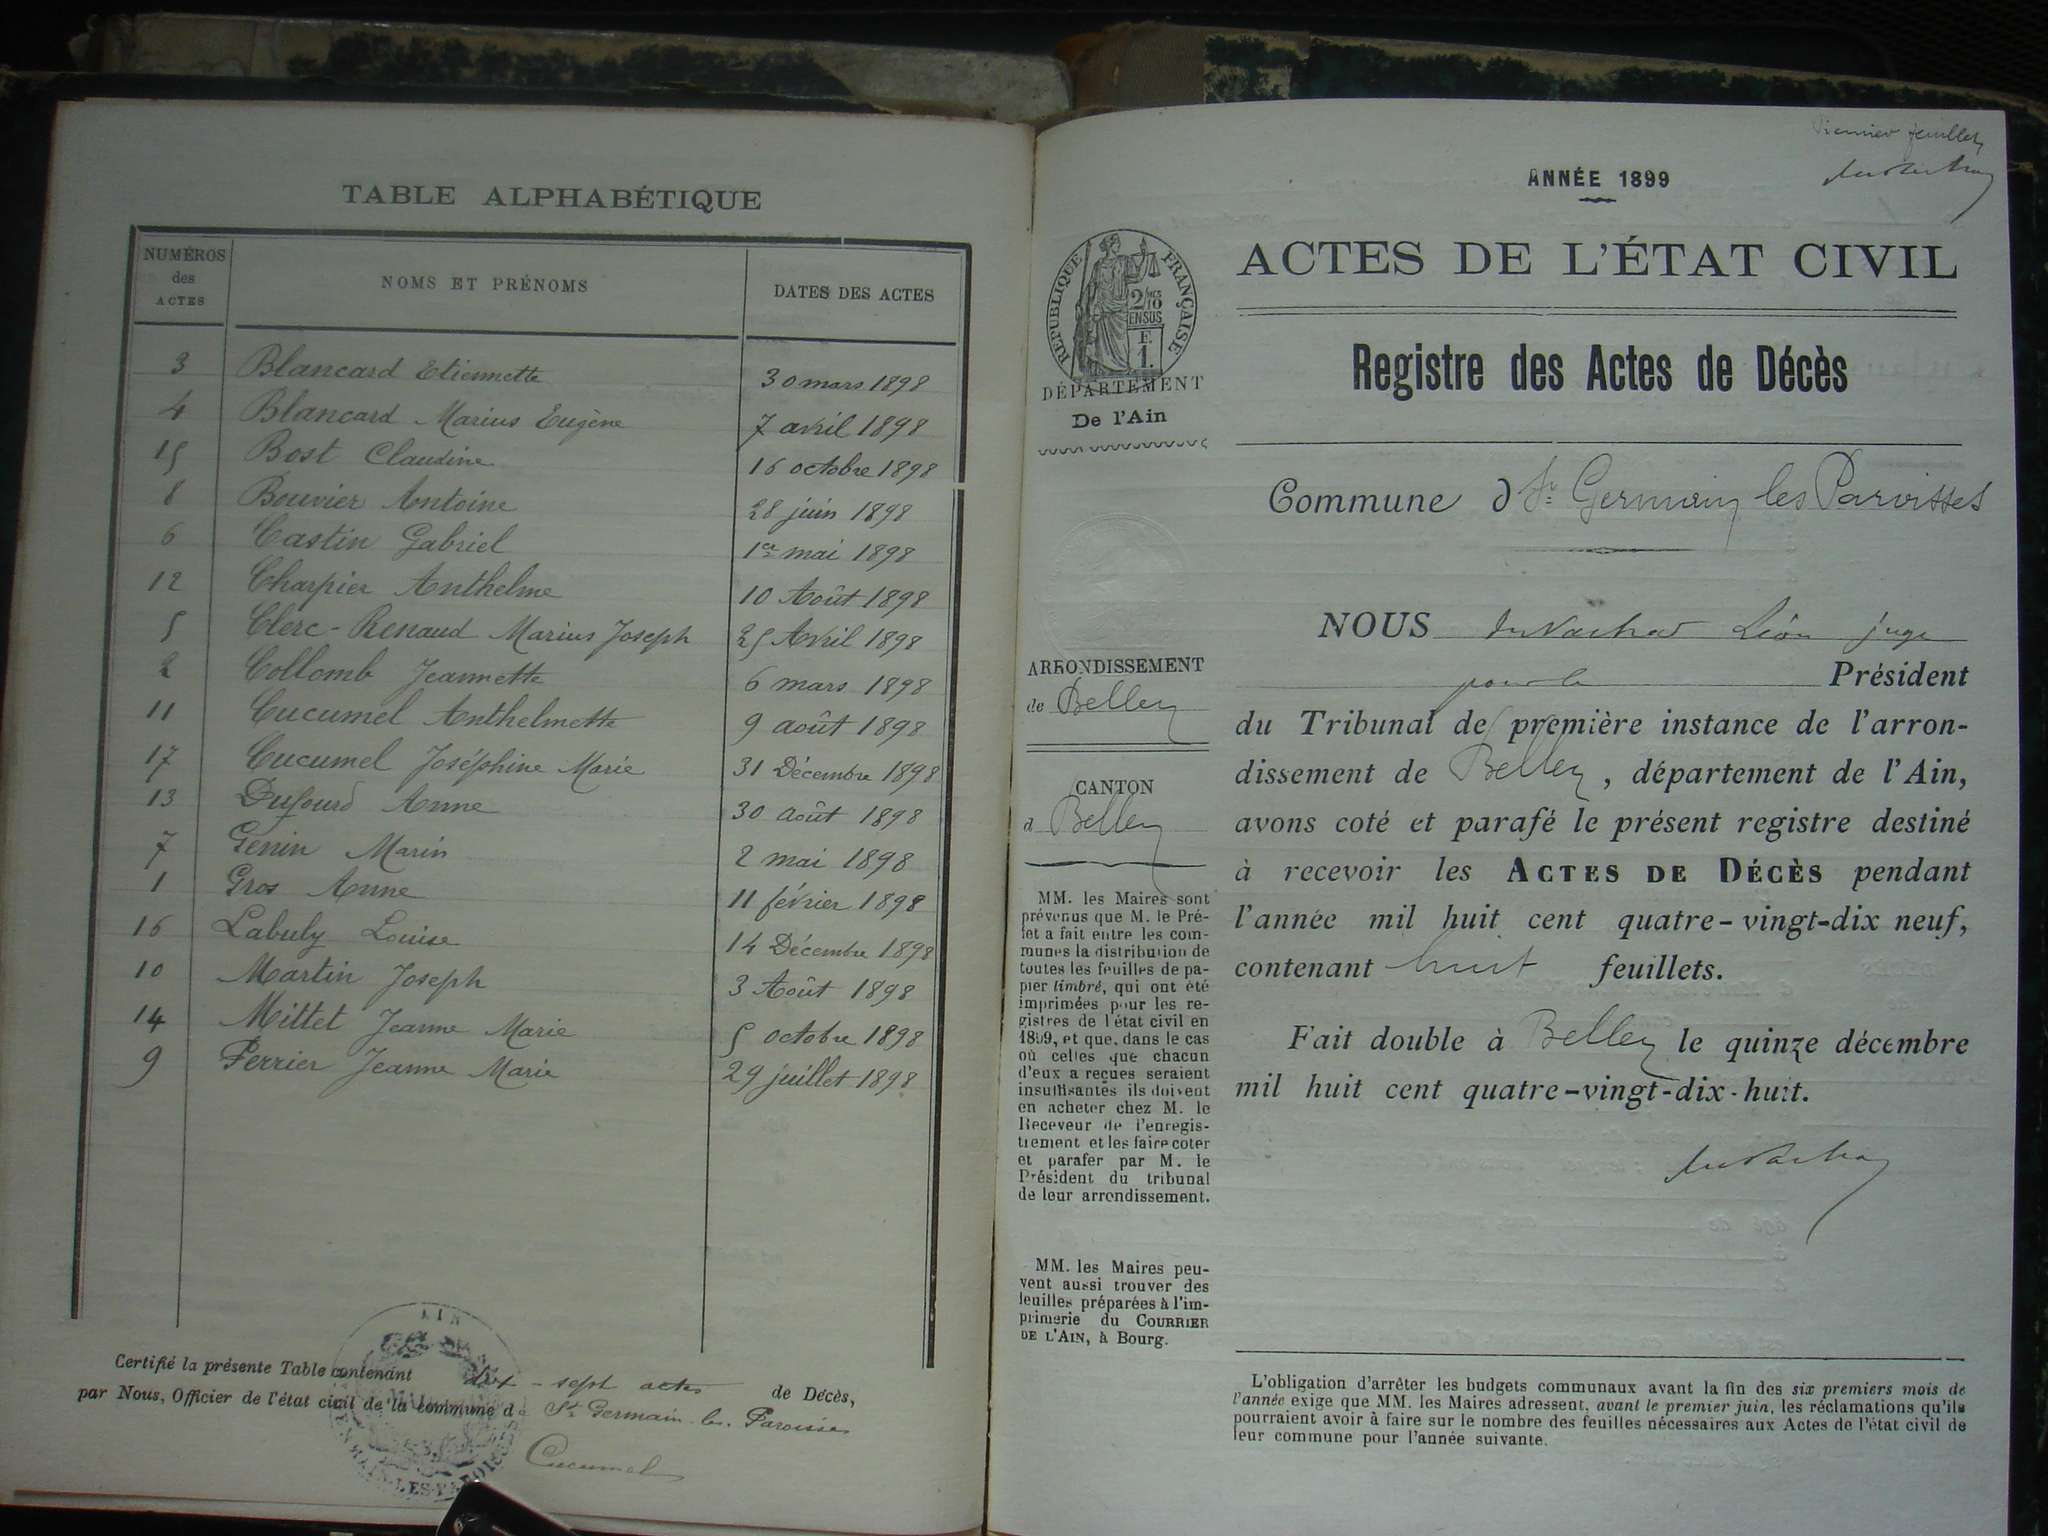 TABLE ALPHABÉTIQUE
NUMÉROS des ACTES
NOMS ET PRÉNOMS
DATES DES ACTES
3 Blancard Etiennette 30 mars 1898
4 Blancard Marius Eugène 7 avril 1898
15 Bost Claudine 16 octobre 1898
8 Bouvier Antoine 28 juin 1898
6 Castin Gabriel 1er mai 1898
12 Charpier Anthelme 10 Août 1898
5 Clerc-Renaud Marius Joseph 25 Avril 1898
2 Collomb Jeannette 6 mars 1898
11 Cucumel Anthelmette 9 août 1898
17 Cucumel Joséphine Marie 31 Décembre 1898
13 Dufourd Anne 30 août 1898
7 Genin Marin 2 mai 1898
1 Gros Anne 11 février 1898
16 Labuly Louise 14 Décembre 1898
10 Martin Joseph 3 Août 1898
14 Mittet Jeanne Marie 5 octobre 1898
9 Perrier Jeanne Marie 29 juillet 1898
Certifié la présente Table contenant dix-sept actes de Décès,
par Nous, Officier de l'état civil de la commune d St Germain-les-Paroisses
Cucumel
AIN
Premier feuillet
ANNÉE 1899
ACTES DE L'ÉTAT CIVIL
RÉPUBLIQUE FRANÇAISE
2/10 EN SUS
F. 1.
DÉPARTEMENT
De l'Ain
Registre des Actes de Décès
Commune d St Germain les Paroisses
ARRONDISSEMENT
de Belley
CANTON
d Belley
MM. les Maires sont
prévenus que M. le Pré-
fet a fait entre les com-
munes la distribution de
toutes les feuilles de pa-
pier timbré, qui ont été
imprimées pour les re-
gistres de l'état civil en
1899, et que, dans le cas
où celles que chacun
d'eux a reçues seraient
insuffisantes ils doivent
en acheter chez M. le
Receveur de l'enregis-
trement et les faire coter
et parafer par M. le
Président du tribunal
de leur arrondissement.
MM. les Maires peu-
vent aussi trouver des
feuilles préparées à l'im-
primerie du COURRIER
DE L'AIN, à Bourg.
NOUS Léon juge
pour le Président
du Tribunal de première instance de l'arron-
dissement de Belley, département de l'Ain,
avons coté et parafé le présent registre destiné
à recevoir les ACTES DE DÉCÈS pendant
l'année mil huit cent quatre-vingt-dix neuf,
contenant huit feuillets.
Fait double à Belley le quinze décembre
mil huit cent quatre-vingt-dix-huit.
L'obligation d'arrêter les budgets communaux avant la fin des six premiers mois de
l'année exige que MM. les Maires adressent, avant le premier juin, les réclamations qu'ils
pourraient avoir à faire sur le nombre des feuilles nécessaires aux Actes de l'état civil de
leur commune pour l'année suivante.